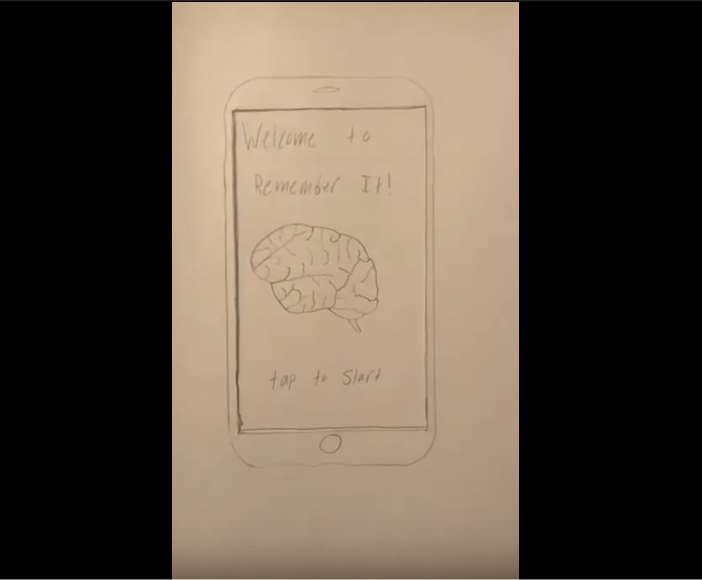 Welcome to
Remember It!
tap to start